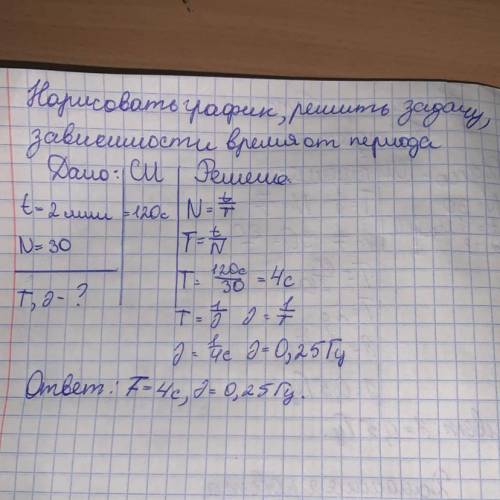 Нарисовать график, решить задачу,
зависимости время от периода
Дано: СИ Решение
t = 2 мин = 120с N = t/T
N = 30 T = t/N
T = 120с/30 = 4с
T, ν - ? T = 1/ν ν = 1/T
ν = 1/4с ν = 0,25 Гц
Ответ: T = 4с, ν = 0,25 Гц.